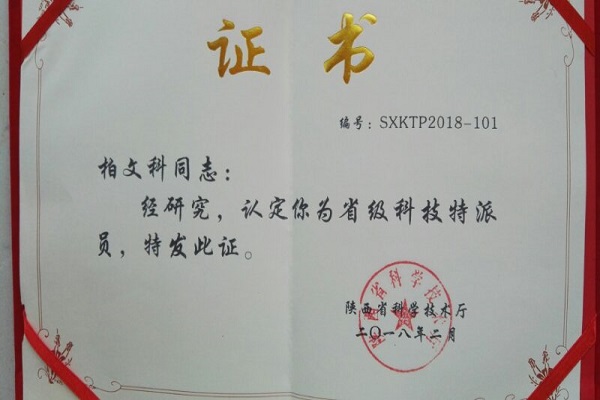 证书
编号：SXKTP2018-101
柏文科同志：
经研究，认定你为省级科技特派
员，特发此证。
陕西省科学技术厅
二〇一八年二月